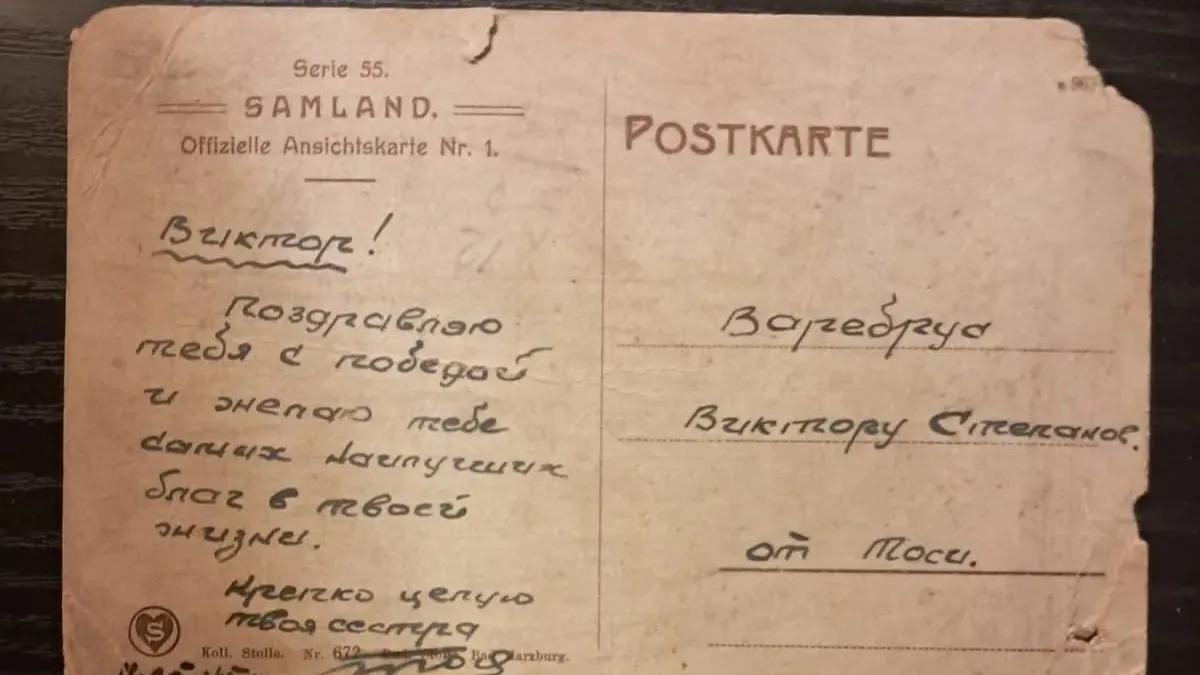 Serie 55.
SAMLAND.
Offizielle Ansichtskarte Nr. 1.
Виктор!
Поздравляю
тебя с победой
и желаю тебе
самых наилучших
благ в твоей
жизни.
Крепко целую
твоя сестра
Тося
S
Koll. Stolle. Nr. 672 Bad Harzburg.
POSTKARTE
Варебруса
Виктору Степанов.
от Тоси.